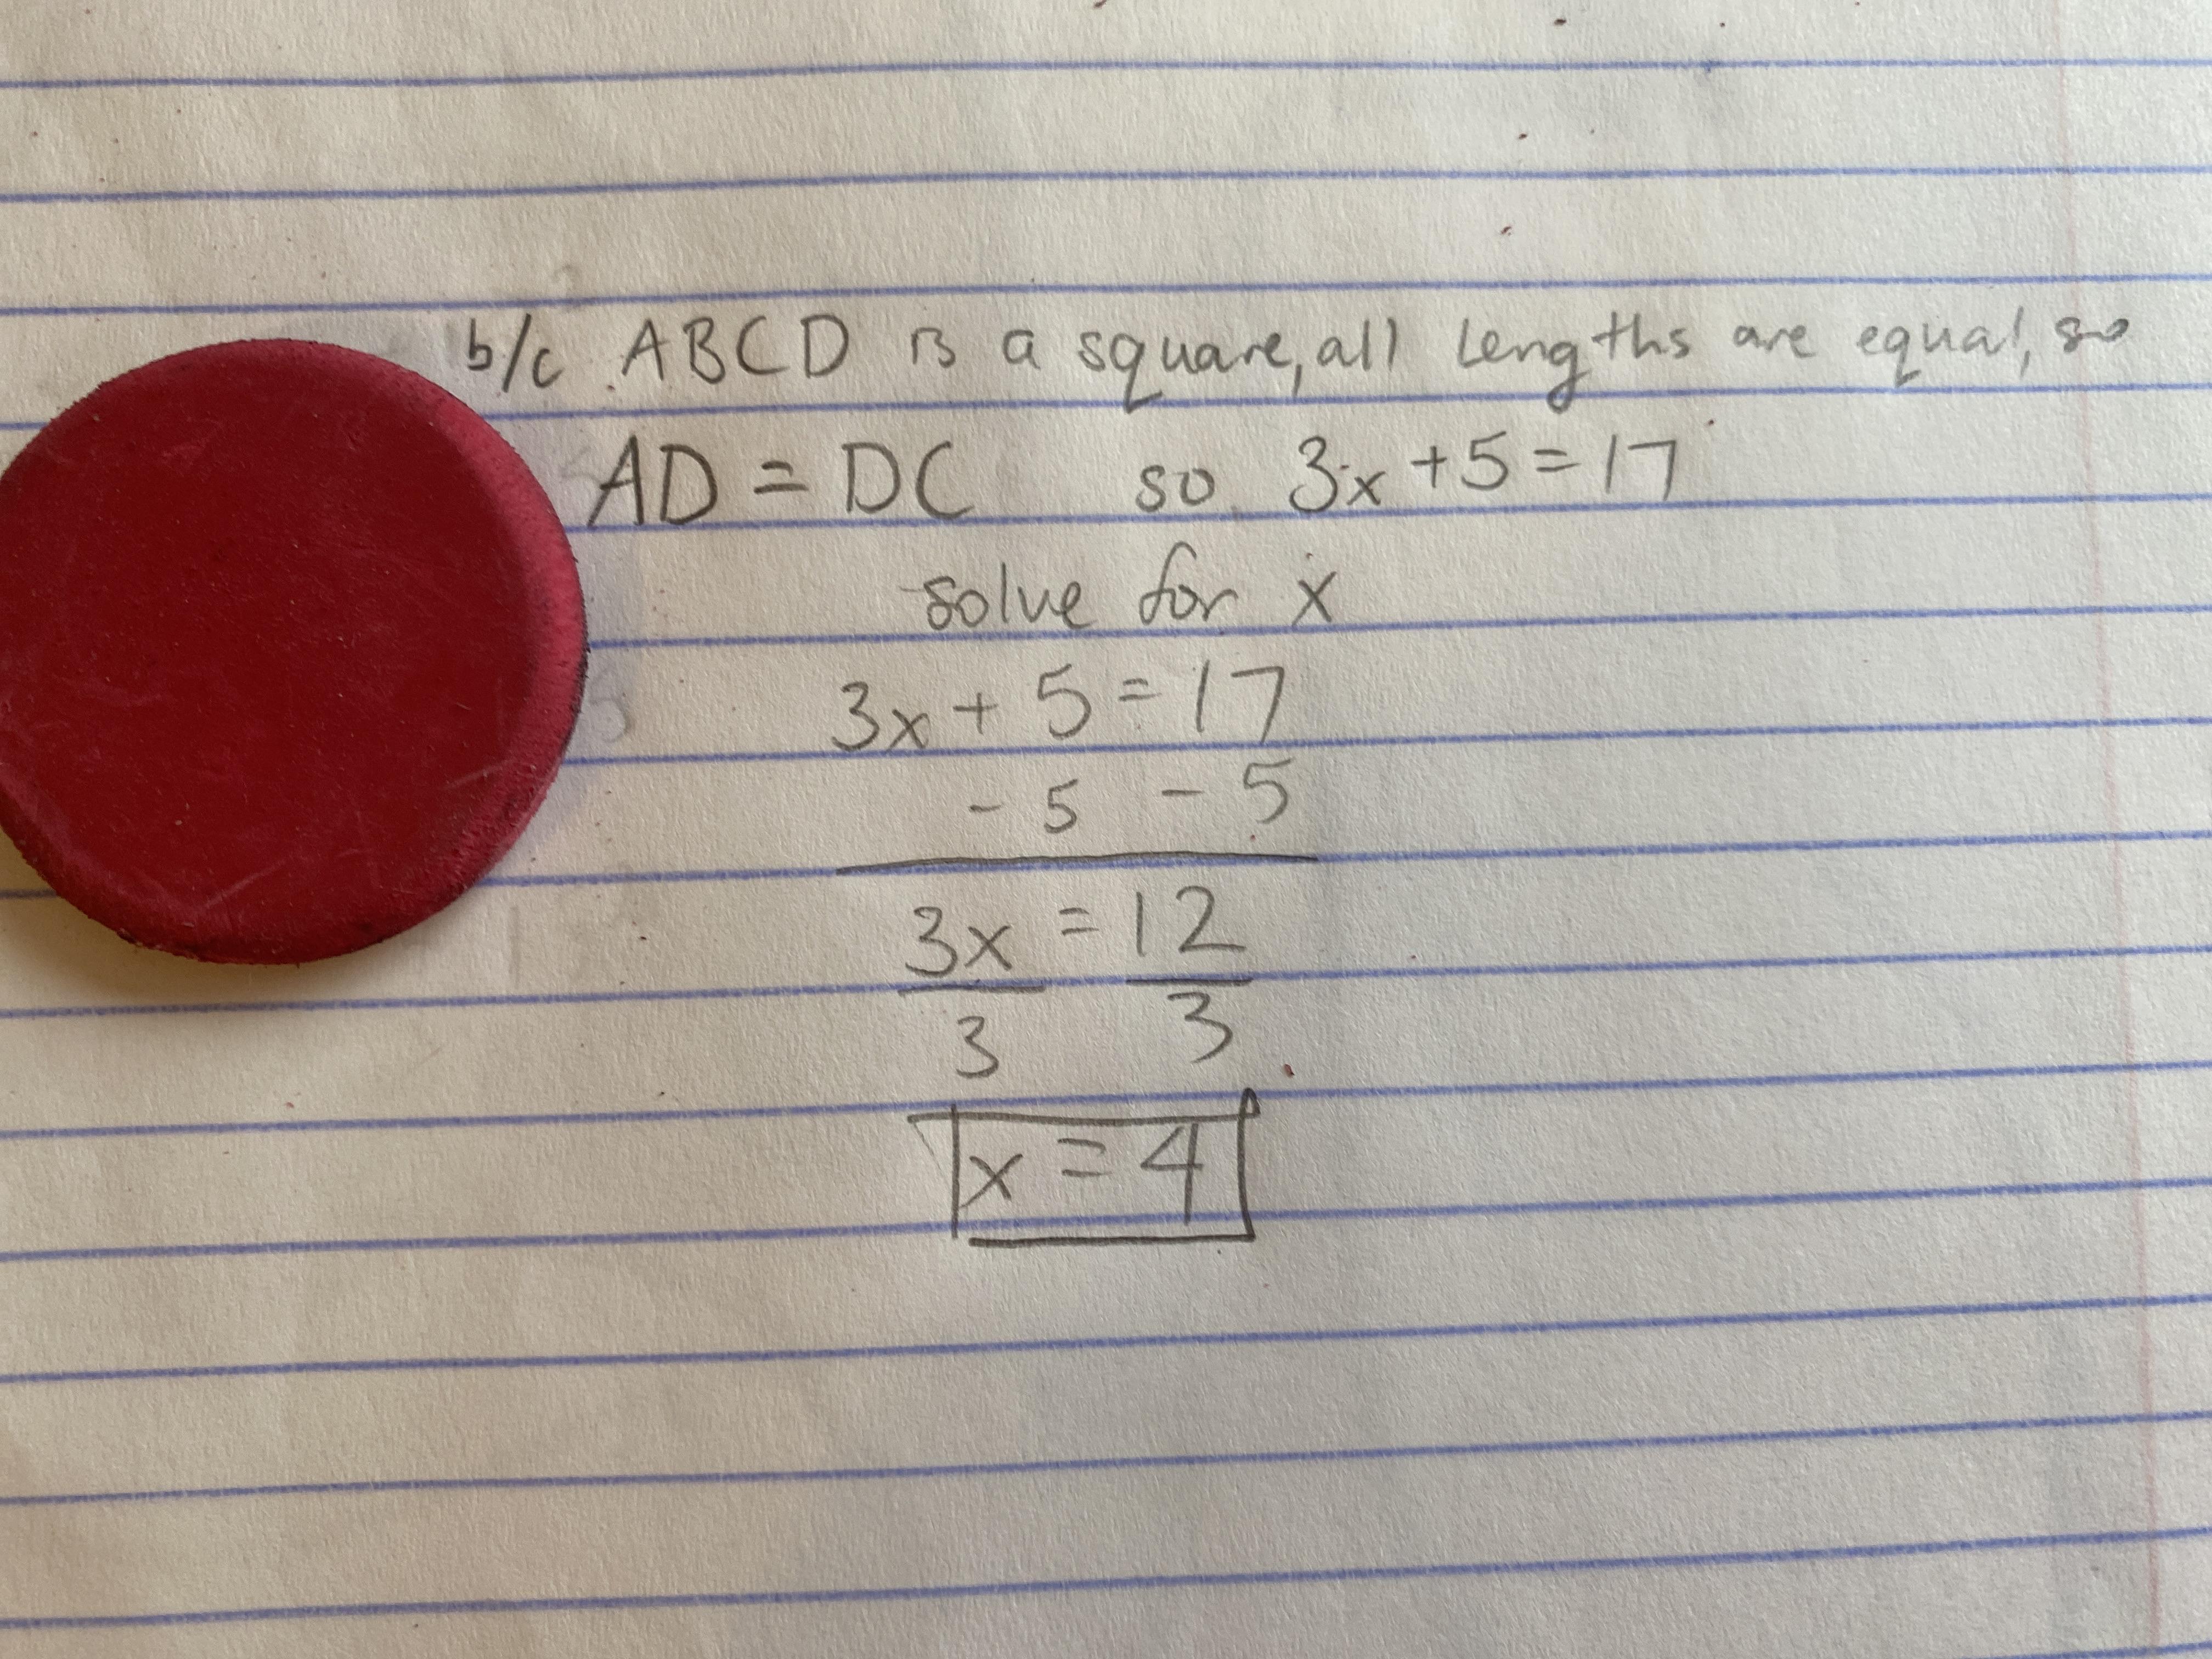 b/c ABCD is a square, all lengths are equal, so
AD = DC so 3x + 5 = 17
solve for x
3x + 5 = 17
- 5 - 5
3x = 12
3 3
x = 4